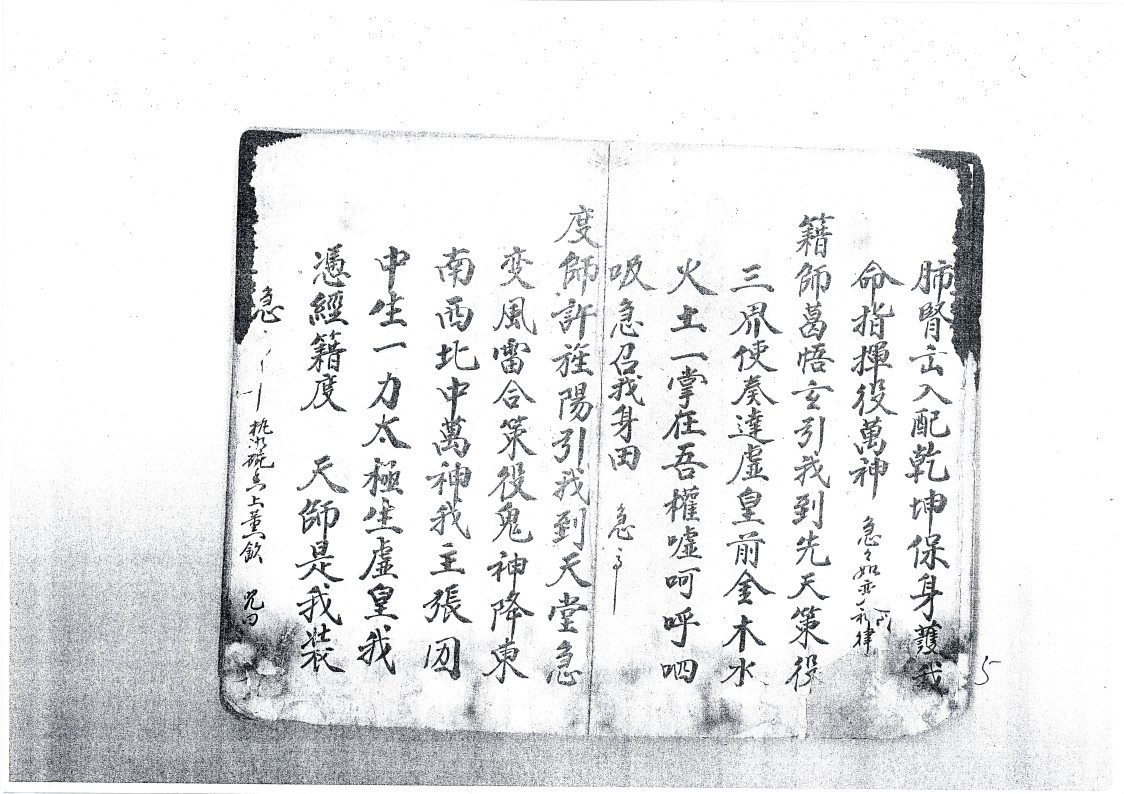 肺腎岳入配乾坤保身護我
命指揮役萬神 急々如
律
籍師葛悟玄引我到先天策役
三界使奏達虛皇前金木水
火土一掌在吾權噓呵呼呬
吸急召我身田 急
度師許旌陽引我到天堂急
变風雷合策役鬼神降東
南西北中萬神我主張
中生一力太極生虛皇我
憑經籍度 天師是我裝
急
上薰飲 咒曰
5